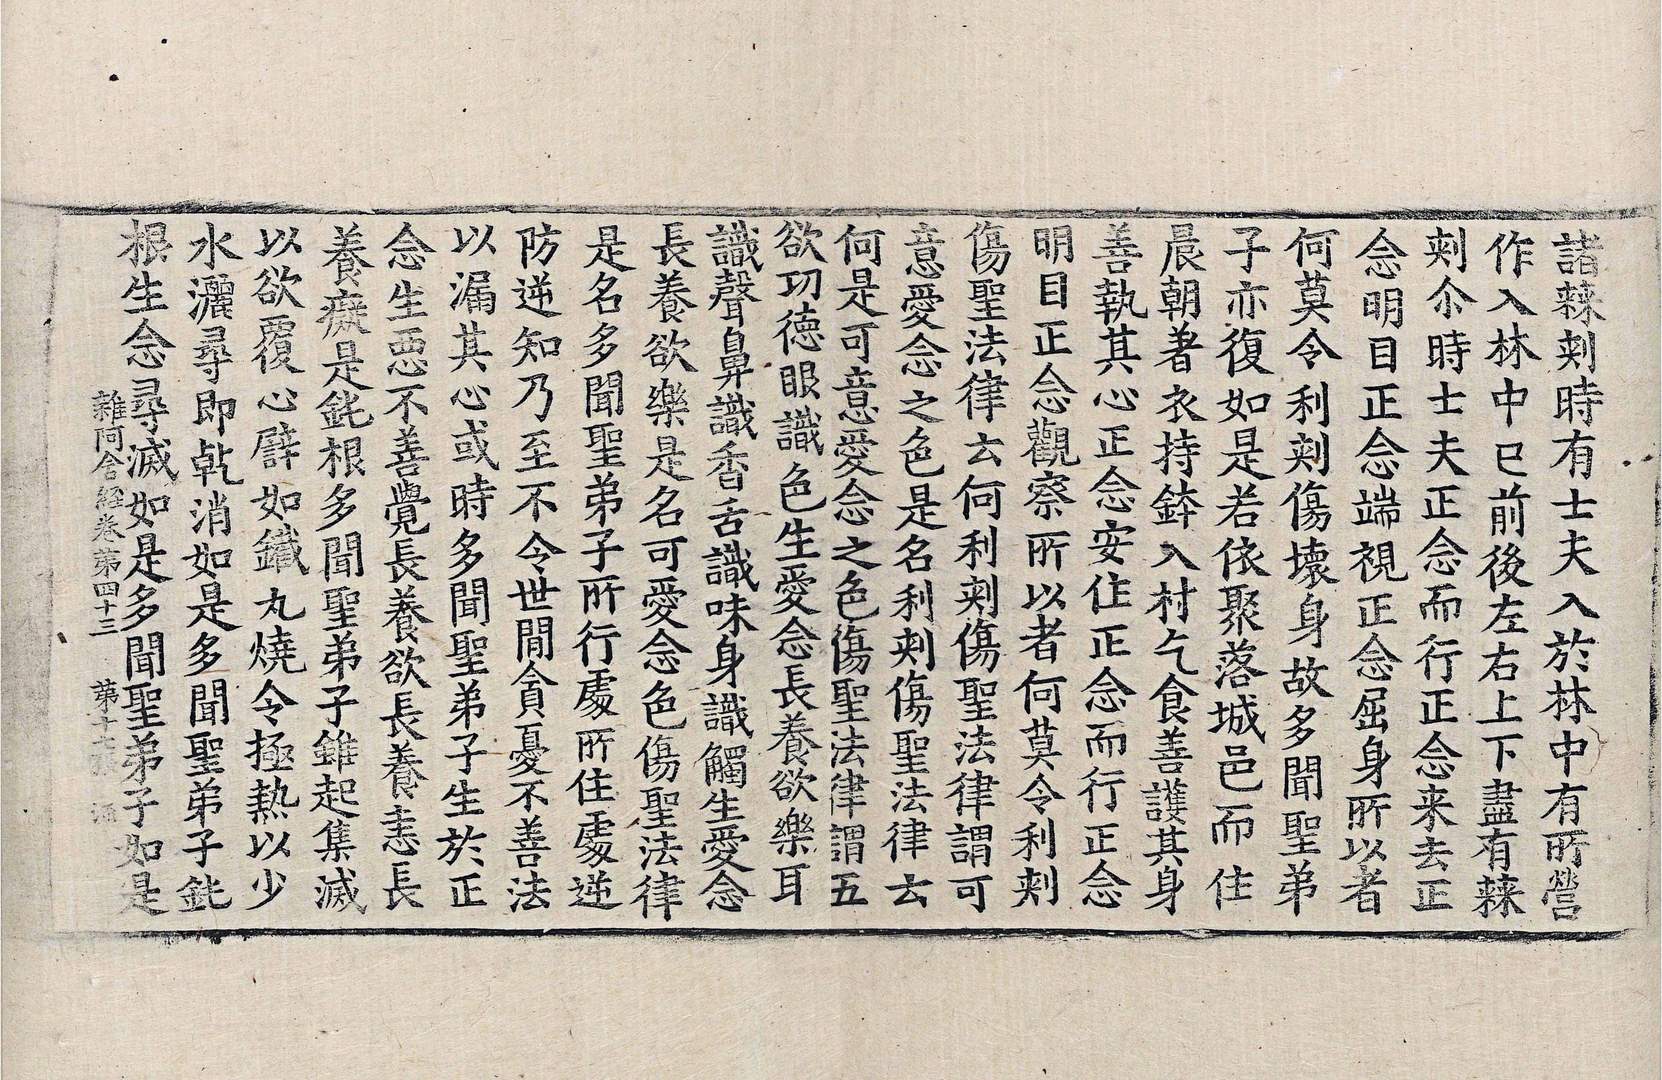 諸棘刾時有士夫入於林中有所營
作入林中已前後左右上下盡有棘
刾尒時士夫正念而行正念来去正
念明目正念端視正念屈身所以者
何莫令利刾傷壊身故多聞聖弟
子亦復如是若依聚落城邑而住
晨朝著衣持鉢入村乞食善護其身
善執其心正念安住正念而行正念
明目正念觀察所以者何莫令利刾
傷聖法律云何利刾傷聖法律謂可
意愛念之色是名利刾傷聖法律云
何是可意愛念之色傷聖法律謂五
欲功德眼識色生愛念長養欲樂耳
識聲鼻識香舌識味身識觸生愛念
長養欲樂是名可愛念色傷聖法律
是名多聞聖弟子所行處所住處逆
防逆知乃至不令世間貪憂不善法
以漏其心或時多聞聖弟子生於正
念生惡不善覺長養欲長養恚長
養癡是鈍根多聞聖弟子雖起集滅
以欲覆心譬如鐵丸燒令極熱以少
水灑尋即乾消如是多聞聖弟子鈍
根生念尋滅如是多聞聖弟子如是
雜阿含経卷第四十三 第十 張